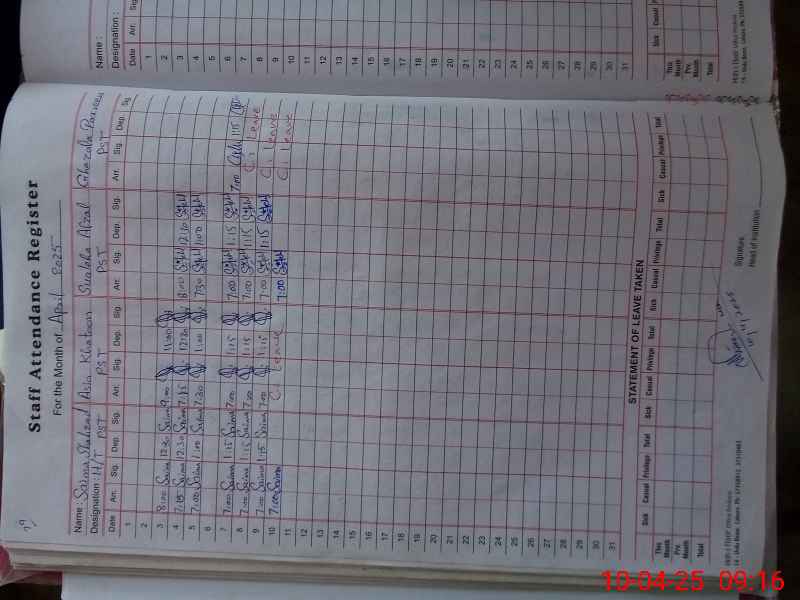 Staff Attendance Register
For the Month of April 2025
Name: Saima Shahzad Asia Khatoon Sualeha Afzal Ghazala Parveen
Designation: H/T PST PST PST PST
Date Arr. Sig. Dep. Sig. Arr. Sig. Dep. Sig. Arr. Sig. Dep. Sig. Arr. Sig. Dep. Sig.
1
2
3 8:00 Saima 12:30 Saima 9:00 11:00
4 7:15 Saima 12:30 Saima 7:15 12:30 8:00 12:10
5 7:00 Saima 1:00 Saima 7:30 1:00 7:30 1:00
6
7 7:00 Saima 1:15 Saima 7:00 1:15 7:00 1:15 7:00 1:15
8 7:00 Saima 1:15 Saima 7:00 1:15 7:00 1:15 Leave
9 7:00 Saima 1:15 Saima 7:00 1:15 7:00 1:15 Leave
10 7:00 Saima Leave 7:00 Leave
11
12
13
14
15
16
17
18
19
20
21
22
23
24
25
26
27
28
29
30
31
STATEMENT OF LEAVE TAKEN
Sick Casual Privilege Total Sick Casual Privilege Total Sick Casual Privilege Total Sick Casual Privilege Total
This Month
Pre. Month
Total
Signature
Head of Institution
Name:
Designation:
Date Arr. Sig.
1
2
3
4
5
6
7
8
9
10
11
12
13
14
15
16
17
18
19
20
21
22
23
24
25
26
27
28
29
30
31
Sick Casual
This Month
Pre. Month
Total
10-04-25 09:16